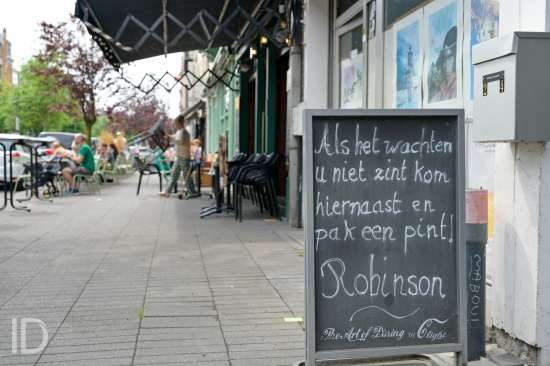 Als het wachten
u niet zint kom
hiernaast en
pak een pint!
Robinson
The Art of Dining
MABOUL
ID